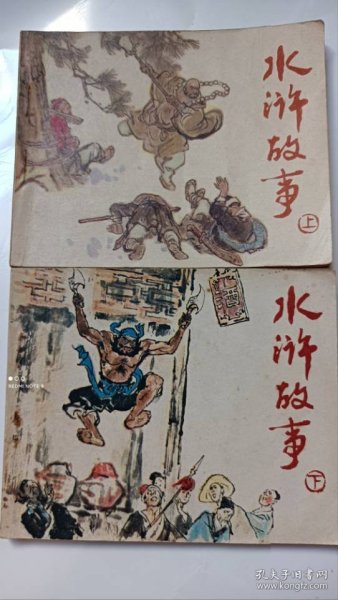 水浒故事
上
水浒故事
下
REDMI NOTE 9
孔夫子旧书网